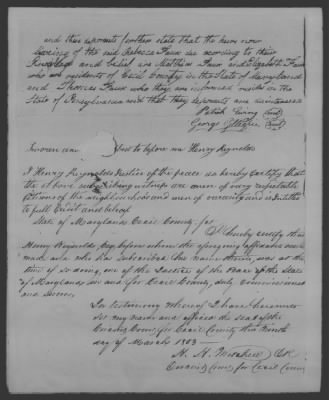 and these deponents further state that the heirs now
living of the said Rebecca Faux are according to their
Knowledge and belief are Matthew Faux and Elizabeth Faux
who are residents of Cecil County in the State of Maryland
and Thomas Faux who they are informed resides in the
State of Pensylvania and that they deponents are
Patrick Ewing (seal)
George Gillespie (seal)
Sworn and before me Henry Reynolds
I Henry Reynolds Justice of the peace do hereby certify that
the above subscribing witnesses are men of very respectable
citizens of the neighbourhood and men of veracity and entitled
to full credit and belief
State of Maryland Cecil County, Sct.
I hereby certify that
Henry Reynolds Esq before whom the foregoing affidavits were
made and who has subscribed his name thereto, was at the
time of so doing, one of the Justices of the Peace of the State
of Maryland in and for Cecil County duly commissioned
and sworn,
In testimony whereof I have hereunto
set my name and affixed the seal of the
Circuit Court for Cecil County this
day of March 1853
Clk
Circuit Court for Cecil County